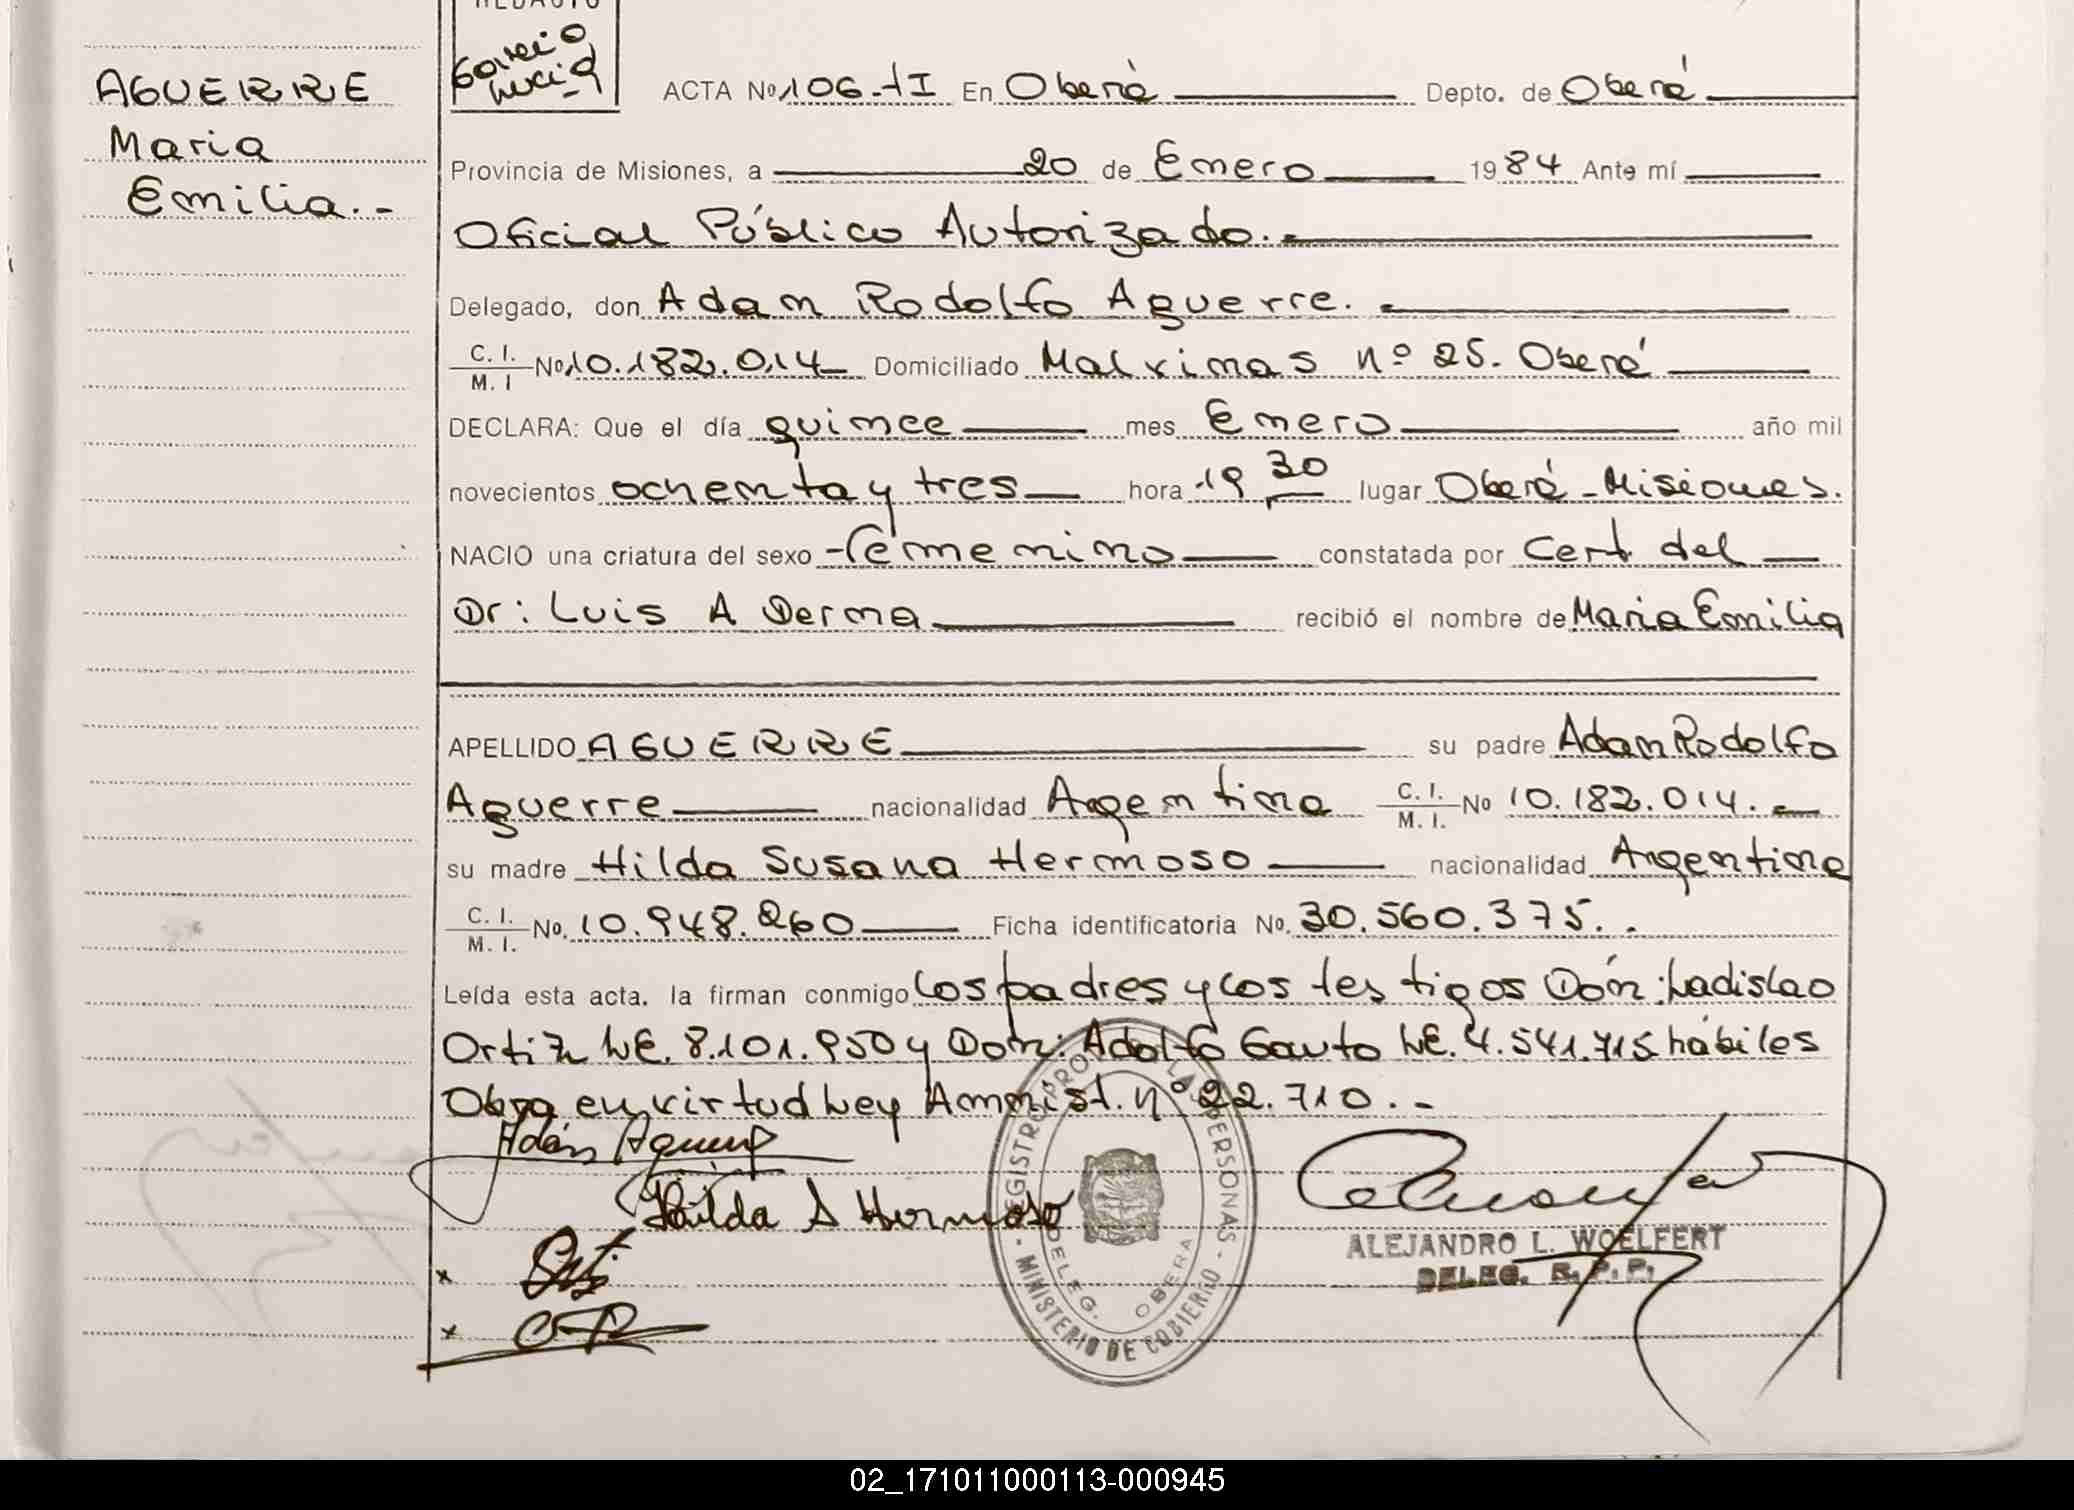 REDACTO
García
Lucia
AGUERRE
Maria
Emilia.-
ACTA Nº 106-tI En Oberá Depto. de Oberá
Provincia de Misiones, a 20 de Enero 1984 Ante mí
Oficial Público Autorizado.
Delegado, don Adam Rodolfo Aguerre.
C. I.
M. I Nº 10.182.014 Domiciliado Malvinas nº 25. Oberá
DECLARA: Que el día quince mes Enero año mil
novecientos ochenta y tres hora 19 30 lugar Oberá - Misiones.
NACIO una criatura del sexo femenino constatada por Cert. del
Dr: Luis A Derna recibió el nombre de Maria Emilia
APELLIDO AGUERRE su padre Adan Rodolfo
Aguerre nacionalidad Argentina C. I. M. I. No 10.182.014.
su madre Hilda Susana Hermoso nacionalidad Argentina
C. I. M. I. No. 10.948.260 Ficha identificatoria No. 30.560.375..
Leída esta acta, la firman conmigo los padres y los testigos Dón: Ladislao
Ortiz LE. 8.101.950 y Dón: Adolfo Gauto LE. 4.541.715 hábiles
Obra en virtud Ley Amnist. nº 22.710.-
Adán Aguerre
Hilda S Hermoso
REGISTRO PROV. DE LAS PERSONAS - MINISTERIO DE GOBIERNO -
DELEG. OBERA
ALEJANDRO L. WOELFERT
DELEG. R. P. P.
02_171011000113-000945